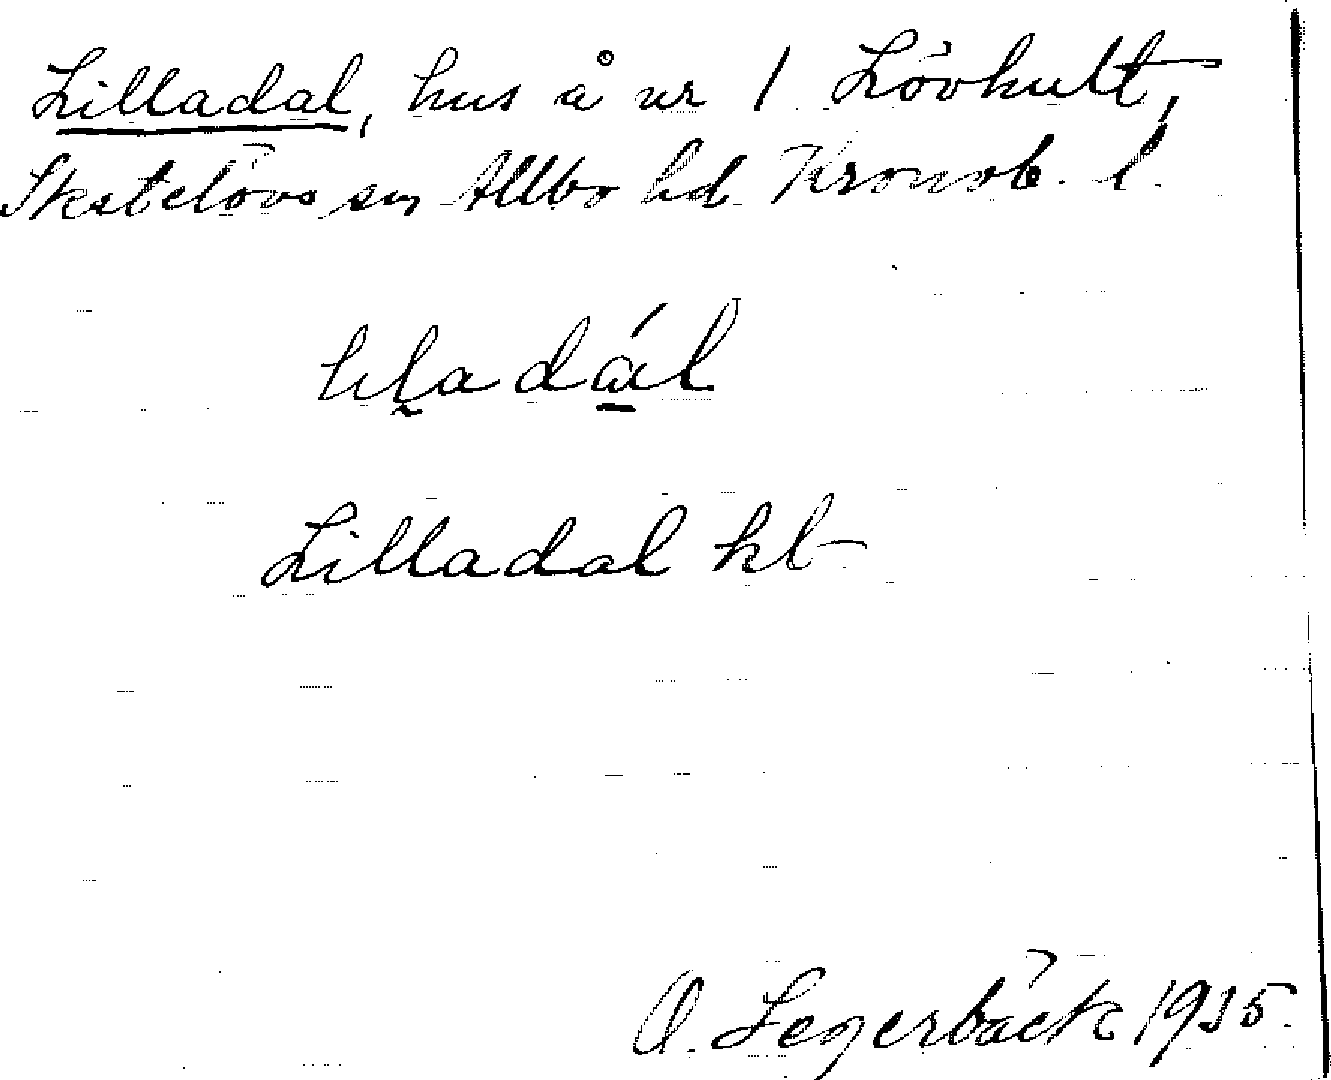 Lilladal, hus å nr 1 Lövhult,
Skatelövs sn Allbo hd. Kronob. l.
Lilladal kb
O. Segerbäck 1935.